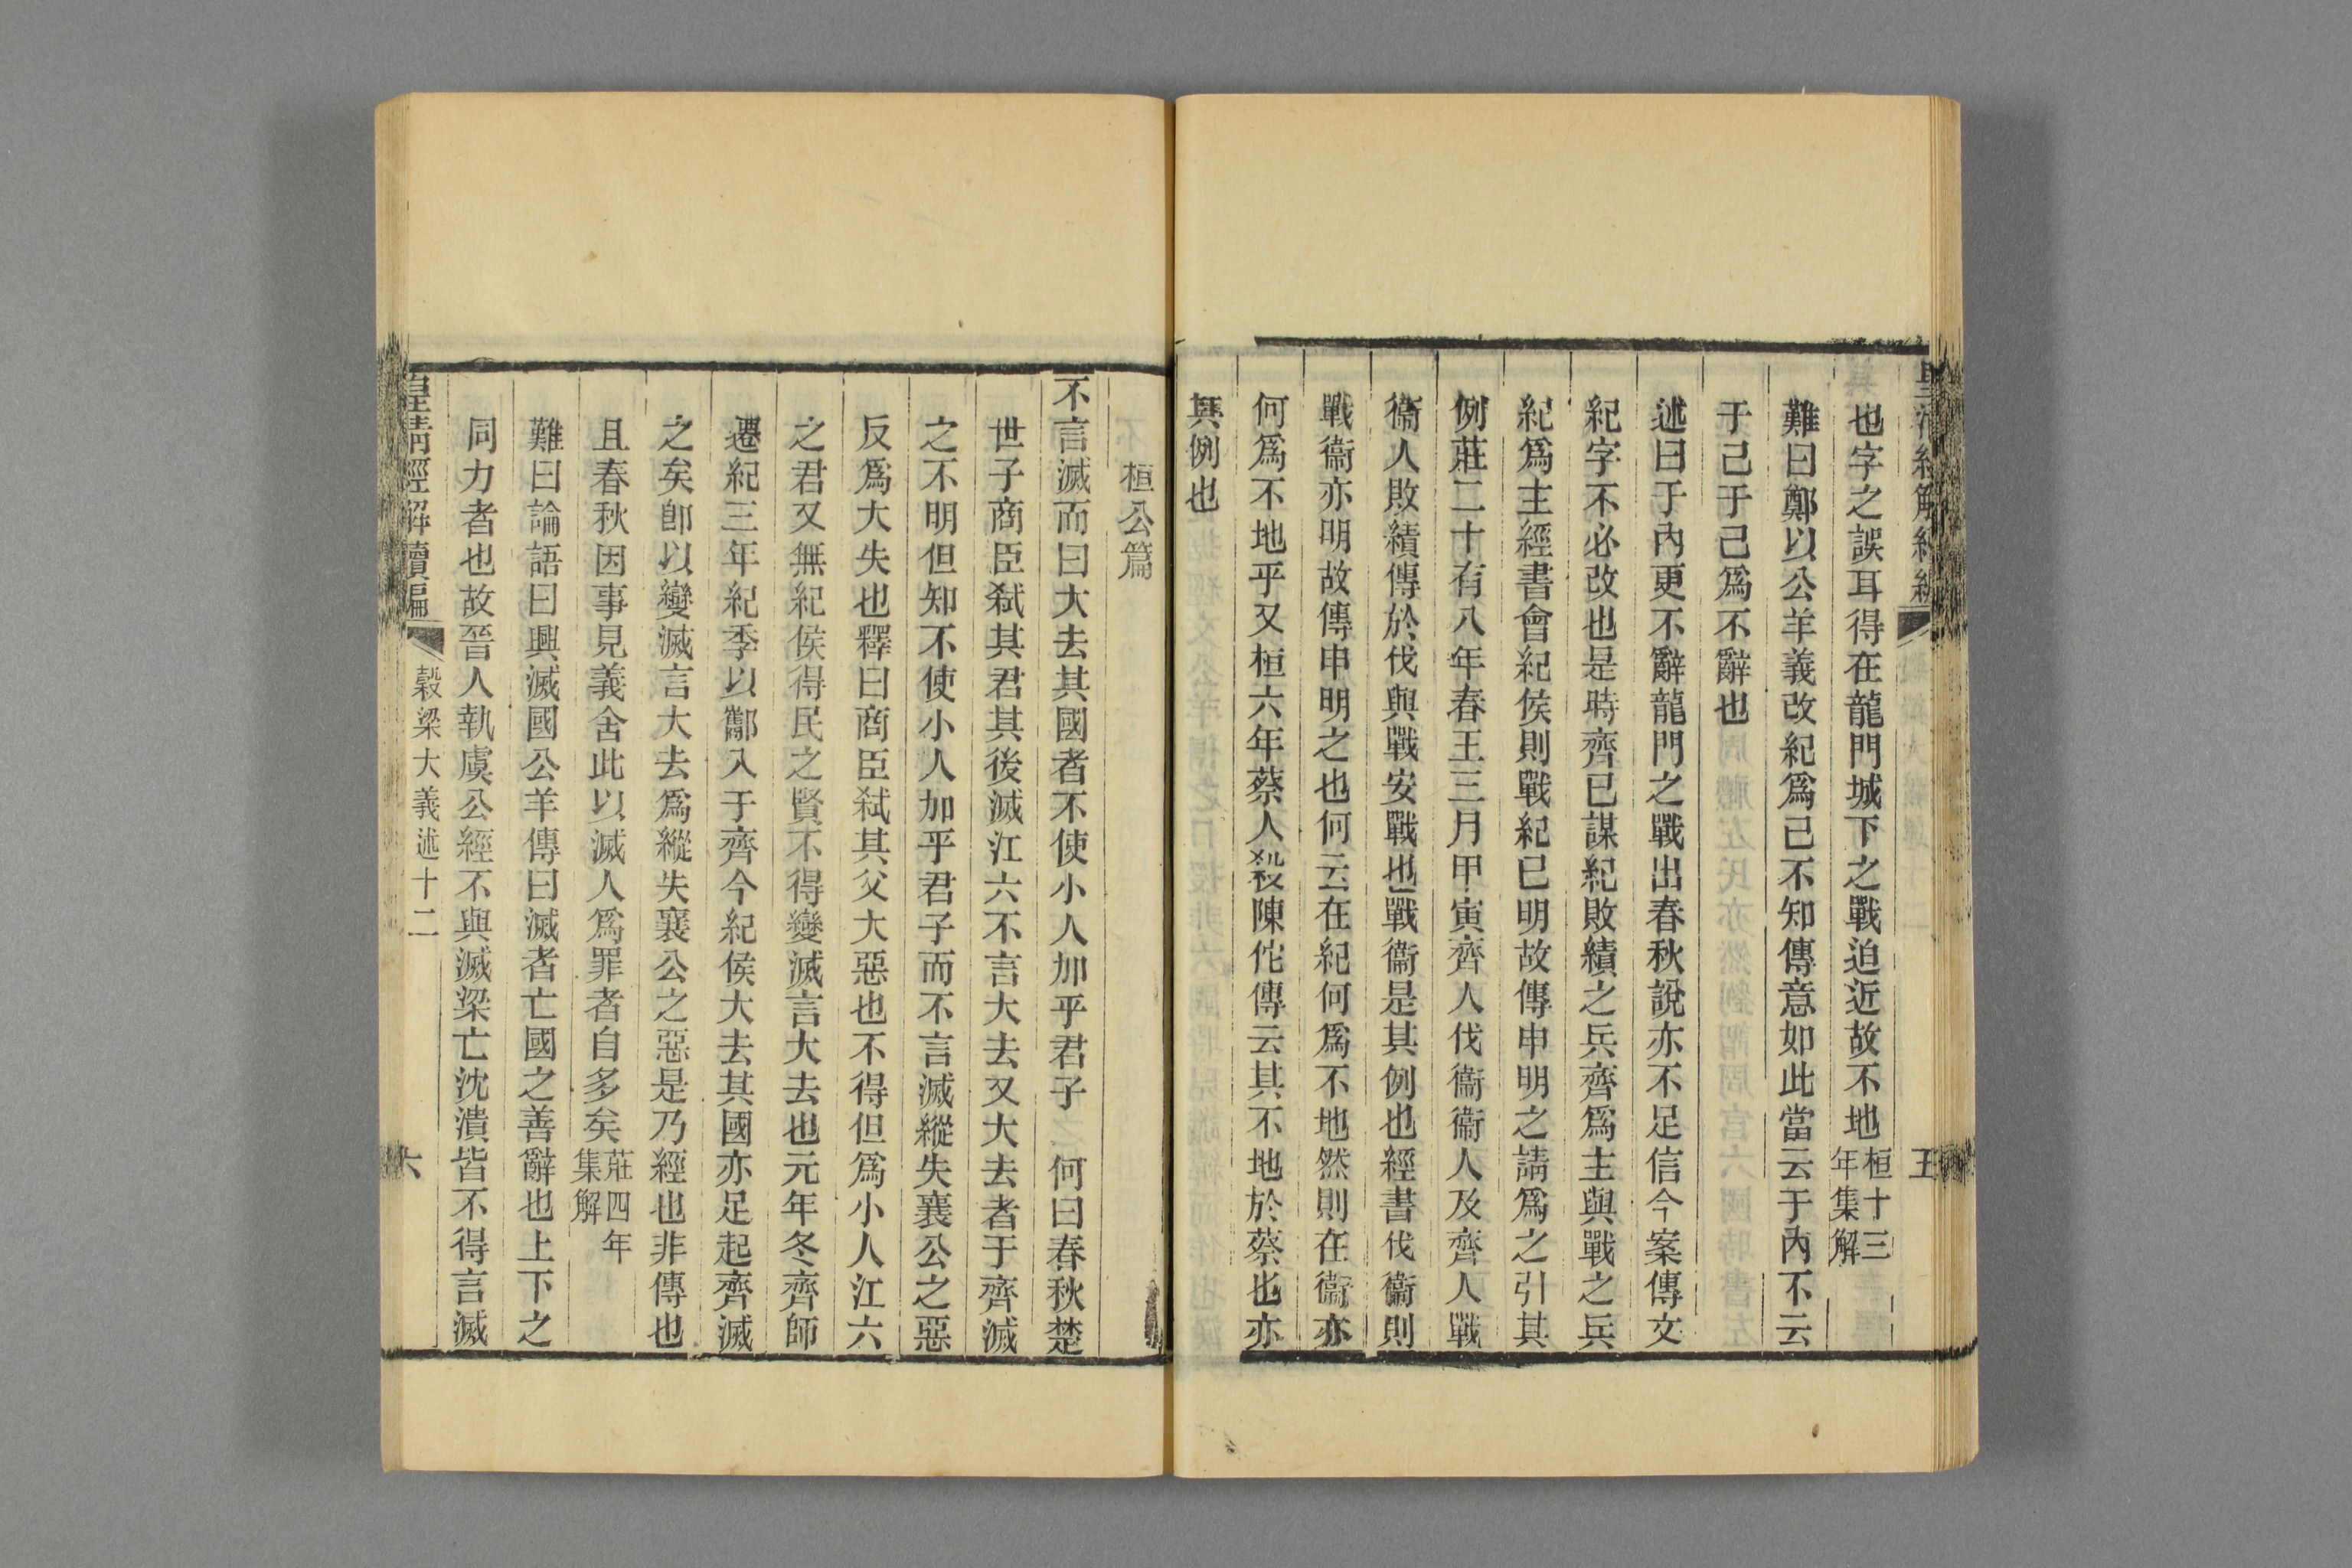 也字之誤耳得在龍門城下之戰迫近故不地桓十三年集解
難曰鄭以公羊義改紀爲己不知傳意如此當云于內不云
于己于己爲不辭也
述曰于內更不辭龍門之戰出春秋說亦不足信今案傳文
紀字不必改也是時齊已謀紀敗績之兵齊爲主與戰之兵
紀爲主經書會紀侯則戰紀已明故傳申明之請爲之引其
例莊二十有八年春王三月甲寅齊人伐衞衞人及齊人戰
衞人敗績傳於伐與戰安戰也戰衞是其例也經書伐衞則
戰衞亦明故傳申明之也何云在紀何爲不地然則在衞亦
何爲不地乎又桓六年蔡人殺陳佗傳云其不地於蔡也亦
其例也
五
桓公篇
不言滅而曰大去其國者不使小人加乎君子之何曰春秋楚
世子商臣弒其君其後滅江六不言大去又大去者于齊滅
之不明但知不使小人加乎君子而不言滅縱失襄公之惡
反爲大失也釋曰商臣弒其父大惡也不得但爲小人江六
之君又無紀侯得民之賢不得變滅言大去也元年冬齊師
遷紀三年紀季以酅入于齊今紀侯大去其國亦足起齊滅
之矣卽以變滅言大去爲縱失襄公之惡是乃經也非傳也
且春秋因事見義舍此以滅人爲罪者自多矣莊四年集解
難曰論語曰興滅國公羊傳曰滅者亡國之善辭也上下之
同力者也故晉人執虞公經不與滅梁亡沈潰皆不得言滅
皇清經解續編
穀梁大義述十二
六